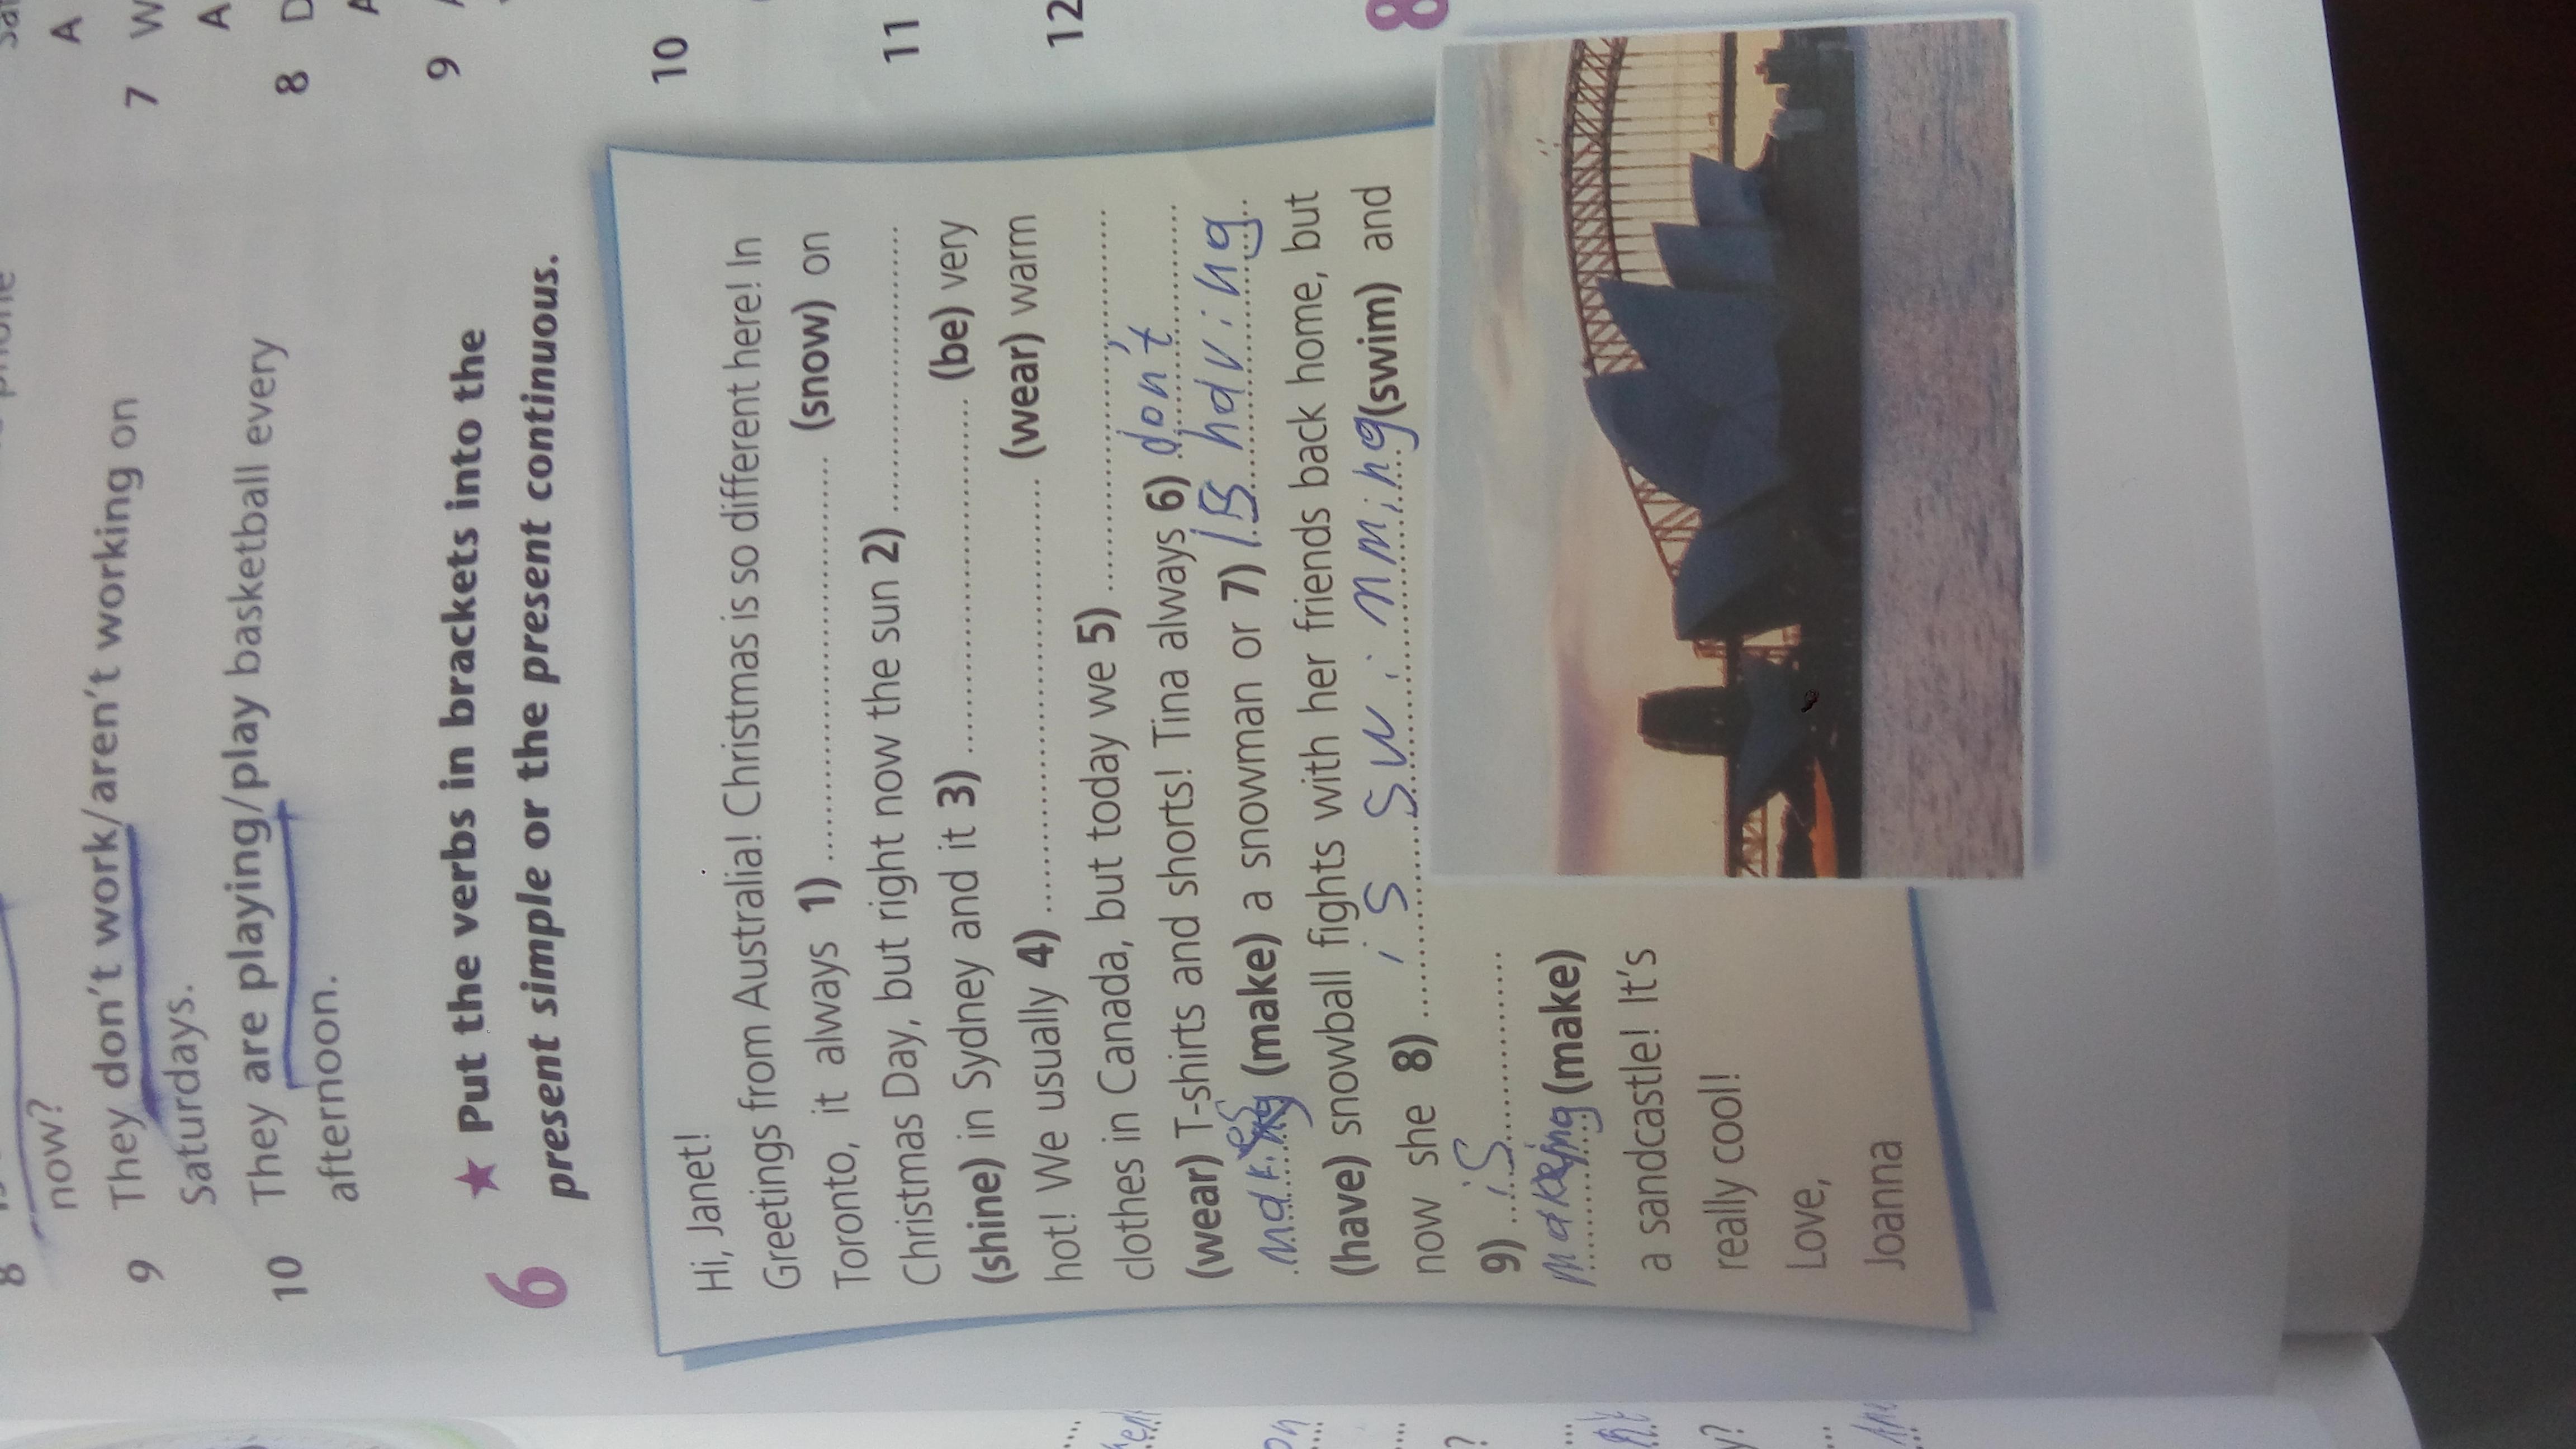 now?
9 They don't work/aren't working on
Saturdays.
10 They are playing/play basketball every
afternoon.
6 ★ Put the verbs in brackets into the
present simple or the present continuous.
Hi, Janet!
Greetings from Australia! Christmas is so different here! In
Toronto, it always 1) .............................. (snow) on
Christmas Day, but right now the sun 2) ....................
(shine) in Sydney and it 3) .............................. (be) very
hot! We usually 4) .............................. (wear) warm
clothes in Canada, but today we 5) ..............................
(wear) T-shirts and shorts! Tina always 6) don't
makes (make) a snowman or 7) is having
(have) snowball fights with her friends back home, but
now she 8) is swimming (swim) and
9) is
making (make)
a sandcastle! It's
really cool!
Love,
Joanna
A
7 W
A
8 D
A
9
10
11
12
8